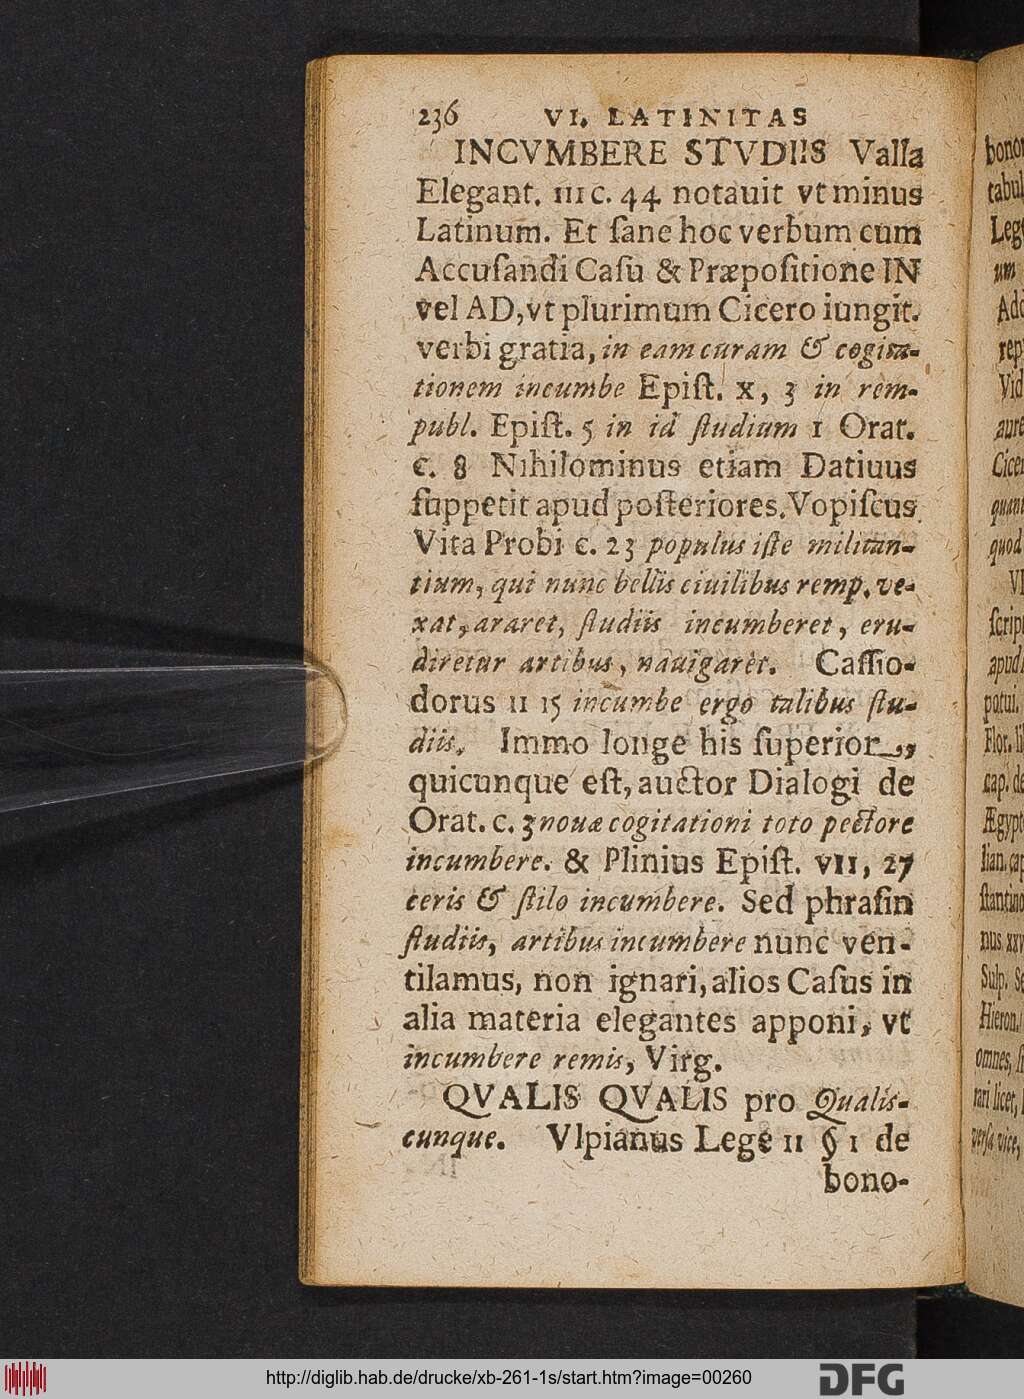 236 VI. LATINITAS
INCVMBERE STVDIIS Valla
Elegant. III c. 44 notauit vt minus
Latinum. Et ſane hoc verbum cum
Accuſandi Caſu & Præpoſitione IN
vel AD, vt plurimum Cicero iungit.
verbi gratia, in eam curam & cogita-
tionem incumbe Epiſt. X, 3 in rem-
publ. Epiſt. 5 in id ſtudium I Orat.
c. 8 Nihilominus etiam Datiuus
ſuppetit apud poſteriores. Vopiſcus
Vita Probi c. 23 populus iſte militan-
tium, qui nunc bellis ciuilibus remp. ve-
xat, araret, ſtudiis incumberet, eru-
diretur artibus, nauigaret. Caſſio-
dorus II 15 incumbe ergo talibus ſtu-
diis. Immo longe his ſuperior,
quicunque eſt, auctor Dialogi de
Orat. c. 3 nouæ cogitationi toto pectore
incumbere. & Plinius Epiſt. VII, 27
ceris & ſtilo incumbere. Sed phraſin
ſtudiis, artibus incumbere nunc ven-
tilamus, non ignari, alios Caſus in
alia materia elegantes apponi, vt
incumbere remis, Virg.
QVALIS QVALIS pro Qualis-
cunque. Vlpianus Lege II § I de
bono-
bono
tabul
Leg
um
Ado
rep
Vid
aure
Cice
quam
quod
VI
ſcrip
apud
potui.
Flor. li
cap. de
Ægypt
lian. cap
ſtantino
nus xxv
Sulp. Se
Hieron.
omnes, ſi
rari licet,
verſa vice,
http://diglib.hab.de/drucke/xb-261-1s/start.htm?image=00260
DFG